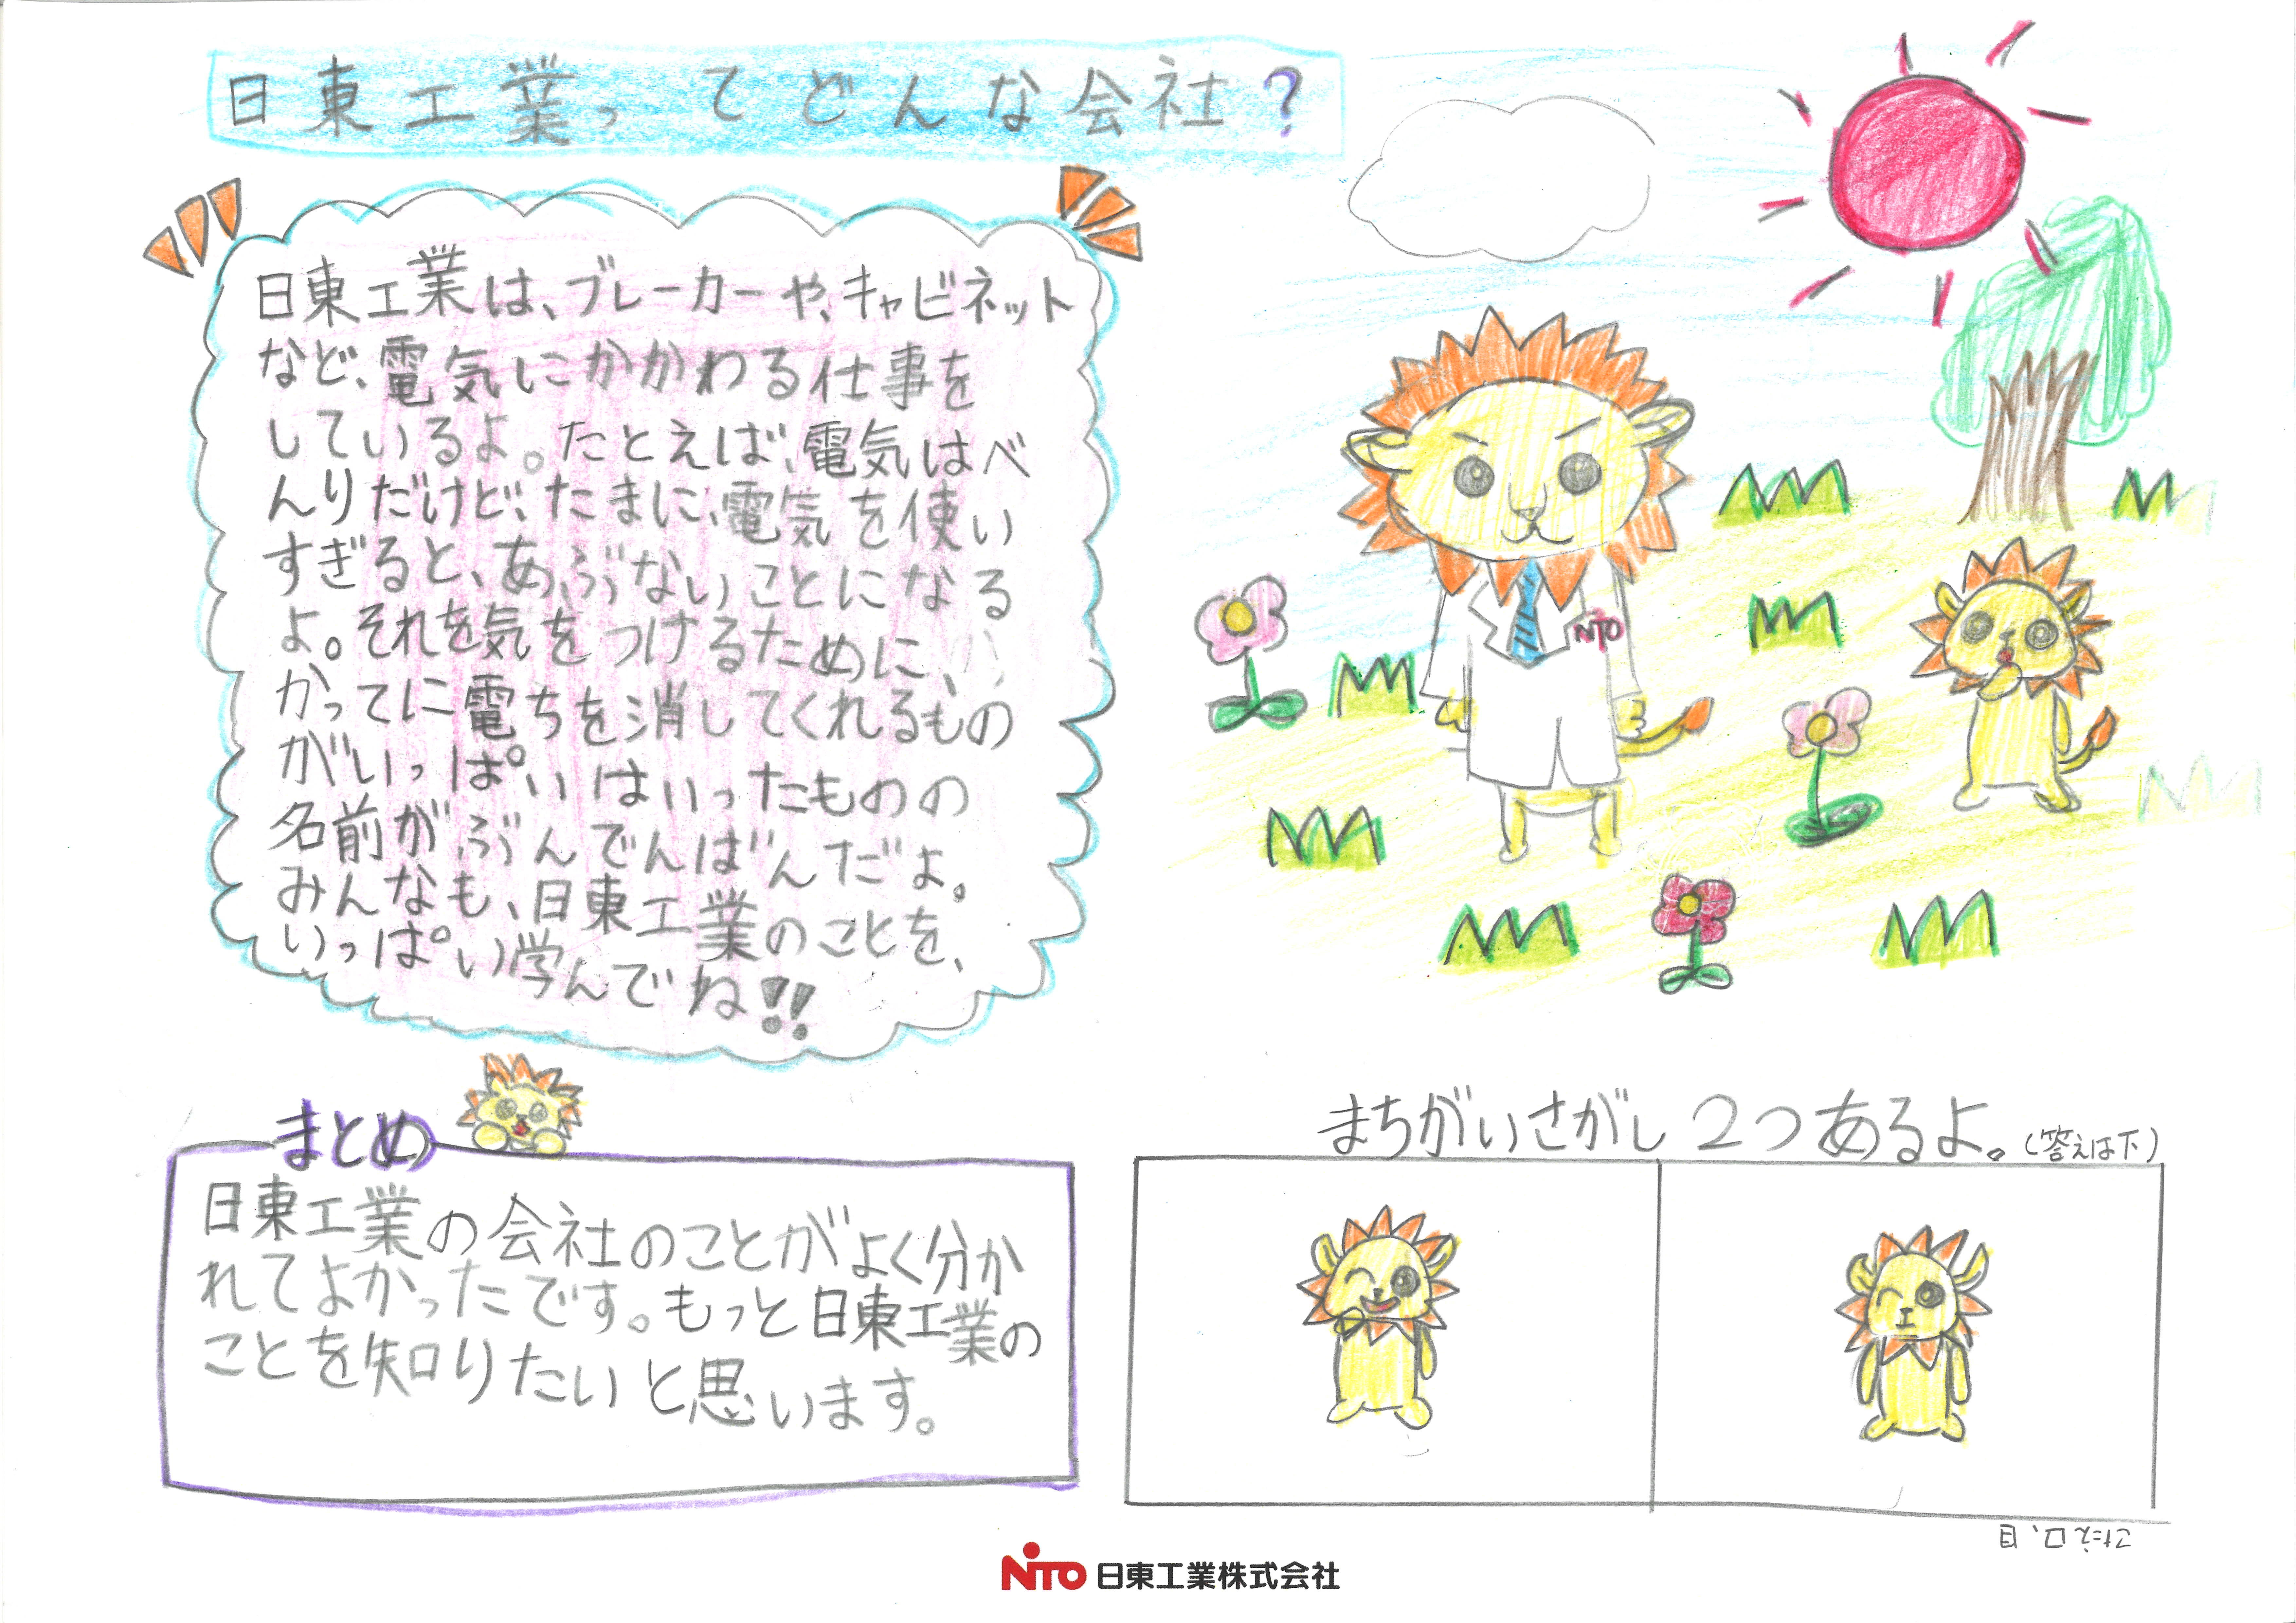 日東工業ってどんな会社？
日東工業は、ブレーカーや、キャビネット
など、電気にかかわる仕事を
しているよ。たとえば、電気はべ
んりだけど、たまに、電気を使い
すぎると、あぶないことになる
よ。それを気をつけるために、
かってに電ちを消してくれるもの
がいっぱいはいったものの
名前がぶんでんばんだよ。
みんなも、日東工業のことを、
いっぱい学んでね!!
NITO
まとめ
日東工業の会社のことがよく分か
れてよかったです。もっと日東工業の
ことを知りたいと思います。
まちがいさがし 2つあるよ。(答えは下)
こたえ口、目
NITO 日東工業株式会社